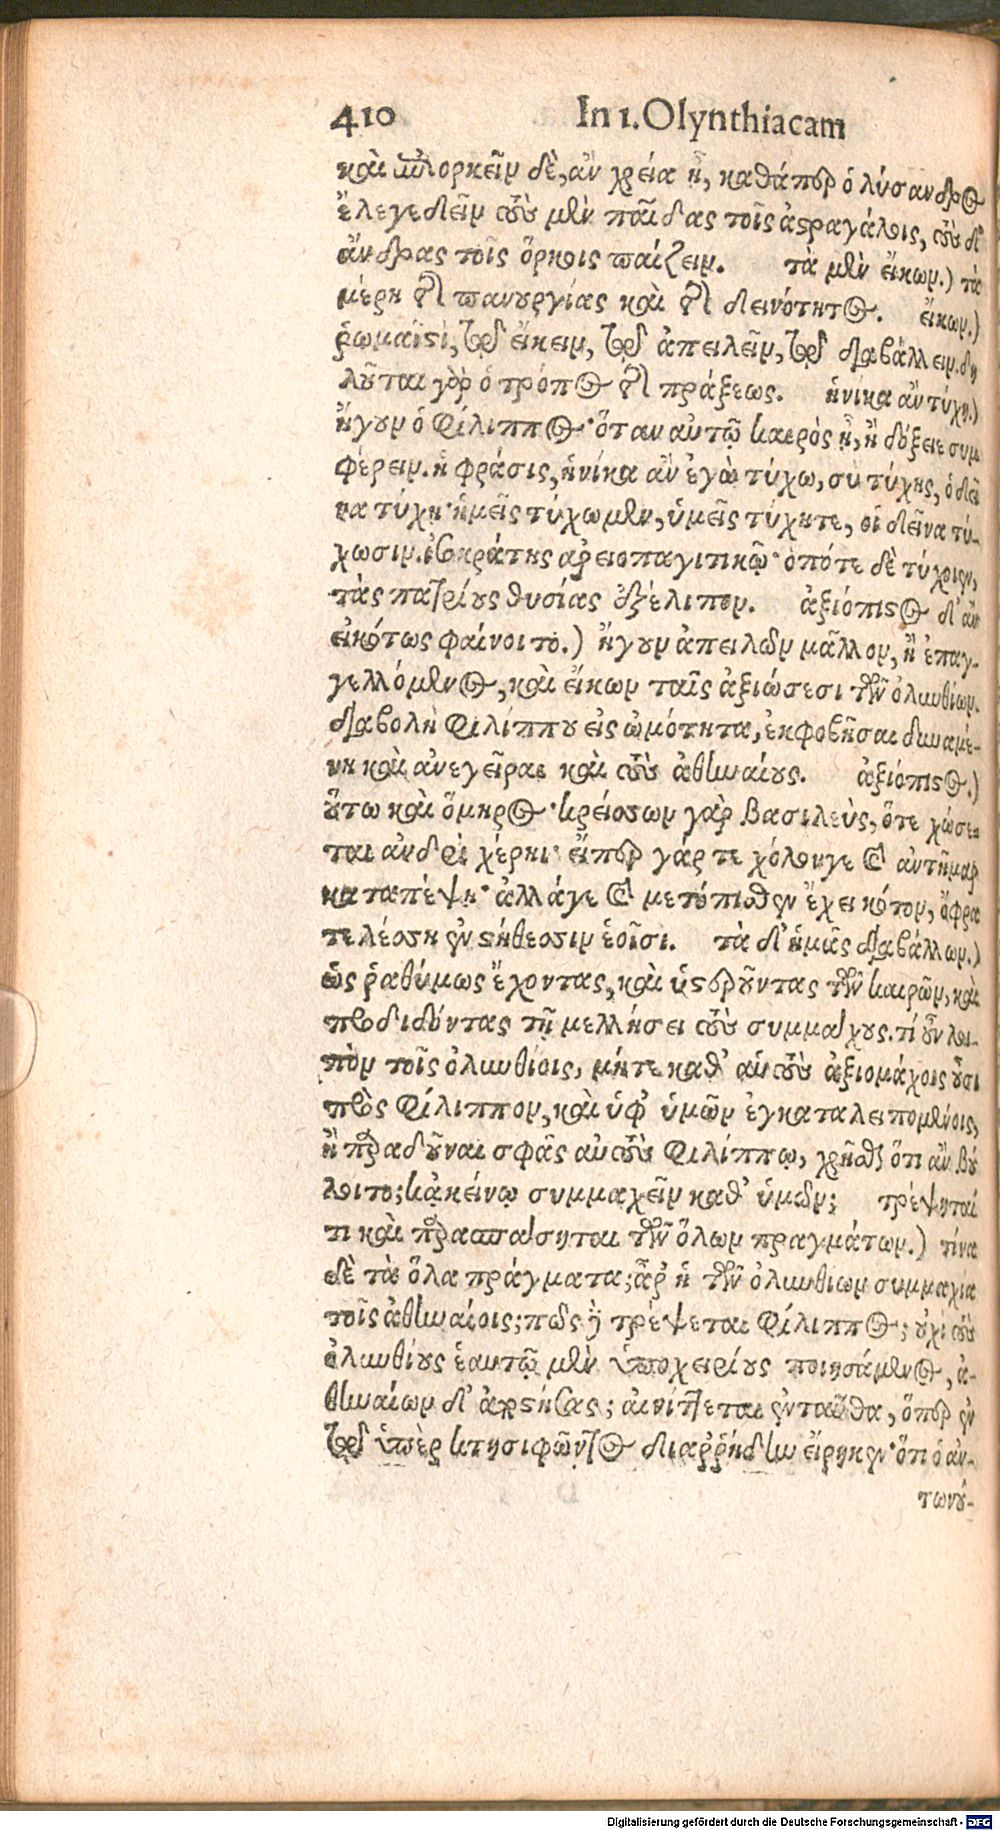 410 In 1. Olynthiacam
καὶ ἐπιορκεῖν δὲ, ἂν χρεία ᾖ, καθάπερ ὁ λύσανδρος
ἔλεγε δεῖν τοὺς μὲν παῖδας τοῖς ἀστραγάλοις, τοὺς δ᾽
ἄνδρας τοῖς ὅρκοις παίζειν. τὰ μὲν εἴκων.) τὰ
μέρη τῆς πανουργίας καὶ τῆς δεινότητος. εἴκων.)
ῥωμαϊστὶ, τοῦ εἴκειν, τοῦ ἀπειλεῖν, τοῦ διαβάλλειν. δη
λοῦται γὰρ ὁ τρόπος τῆς πράξεως. ἡνίκα ἂν τύχῃ.)
ἤγουν ὁ Φίλιππος· ὅταν αὐτῷ καιρὸς ᾖ, ἢ δόξειε συμ
φέρειν. ἡ φράσις, ἡνίκα ἂν ἐγὼ τύχω, σὺ τύχῃς, ὁ δεῖ
να τύχῃ· ἡμεῖς τύχωμεν, ὑμεῖς τύχητε, οἱ δεῖνα τύ-
χωσιν. ἰσοκράτης ἀρειοπαγιτικῷ· ὁπότε δὲ τύχοιεν,
τὰς πατρίους θυσίας ἐξέλιπον. ἀξιόπιστος δ᾽ ἂν
εἰκότως φαίνοιτο.) ἤγουν ἀπειλῶν μᾶλλον, ἢ ἐπαγ-
γελλόμενος, καὶ εἴκων ταῖς ἀξιώσεσι τῶν ὀλυνθίων.
διαβολὴ Φιλίππου εἰς ὠμότητα, ἐκφοβῆσαι δυναμέ-
νη καὶ ἀνεγεῖραι καὶ τοὺς ἀθηναίους. ἀξιόπιστος.)
οὕτω καὶ ὅμηρος· κρείσσων γὰρ βασιλεὺς, ὅτε χώσε-
ται ἀνδρὶ χέρηι· εἴπερ γάρ τε χόλον γε καὶ αὐτῆμαρ
καταπέψῃ· ἀλλάγε καὶ μετόπισθεν ἔχει κότον, ὄφρα
τελέσσῃ ἐν στήθεσσιν ἑοῖσι. τὰ δ᾽ ἡμᾶς διαβάλλων.)
ὡς ῥαθύμως ἔχοντας, καὶ ὑστεροῦντας τῶν καιρῶν, καὶ
προδιδόντας τῇ μελλήσει τοὺς συμμάχους. τί οὖν λοι-
πὸν τοῖς ὀλυνθίοις, μήτε καθ᾽ αὑτοὺς ἀξιομάχοις οὖσι
πρὸς Φίλιππον, καὶ ὑφ᾽ ὑμῶν ἐγκαταλειπομένοις,
ἢ παραδοῦναι σφᾶς αὐτοὺς Φιλίππῳ, χρῆσθαι ὅτι ἂν βού
λοιτο; κἀκείνῳ συμμαχεῖν καθ᾽ ὑμῶν; τρέψηταί
τι καὶ παρασπάσηται τῶν ὅλων πραγμάτων.) τίνα
δὲ τὰ ὅλα πράγματα; ἆρ᾽ ἡ τῶν ὀλυνθίων συμμαχία
τοῖς ἀθηναίοις; πῶς ἢ τρέψεται Φίλιππος; οὐχὶ τοὺς
ὀλυνθίους ἑαυτῷ μὲν ὑποχειρίους ποιησάμενος, ἀ-
θηναίων δ᾽ ἀποστήσας; αἰνίττεται ἐνταῦθα, ὅπερ ἐν
τῷ ὑπὲρ κτησιφῶντος διαῤῥήδην εἴρηκεν· ὅτι ὁ ἀν-
τωνού-